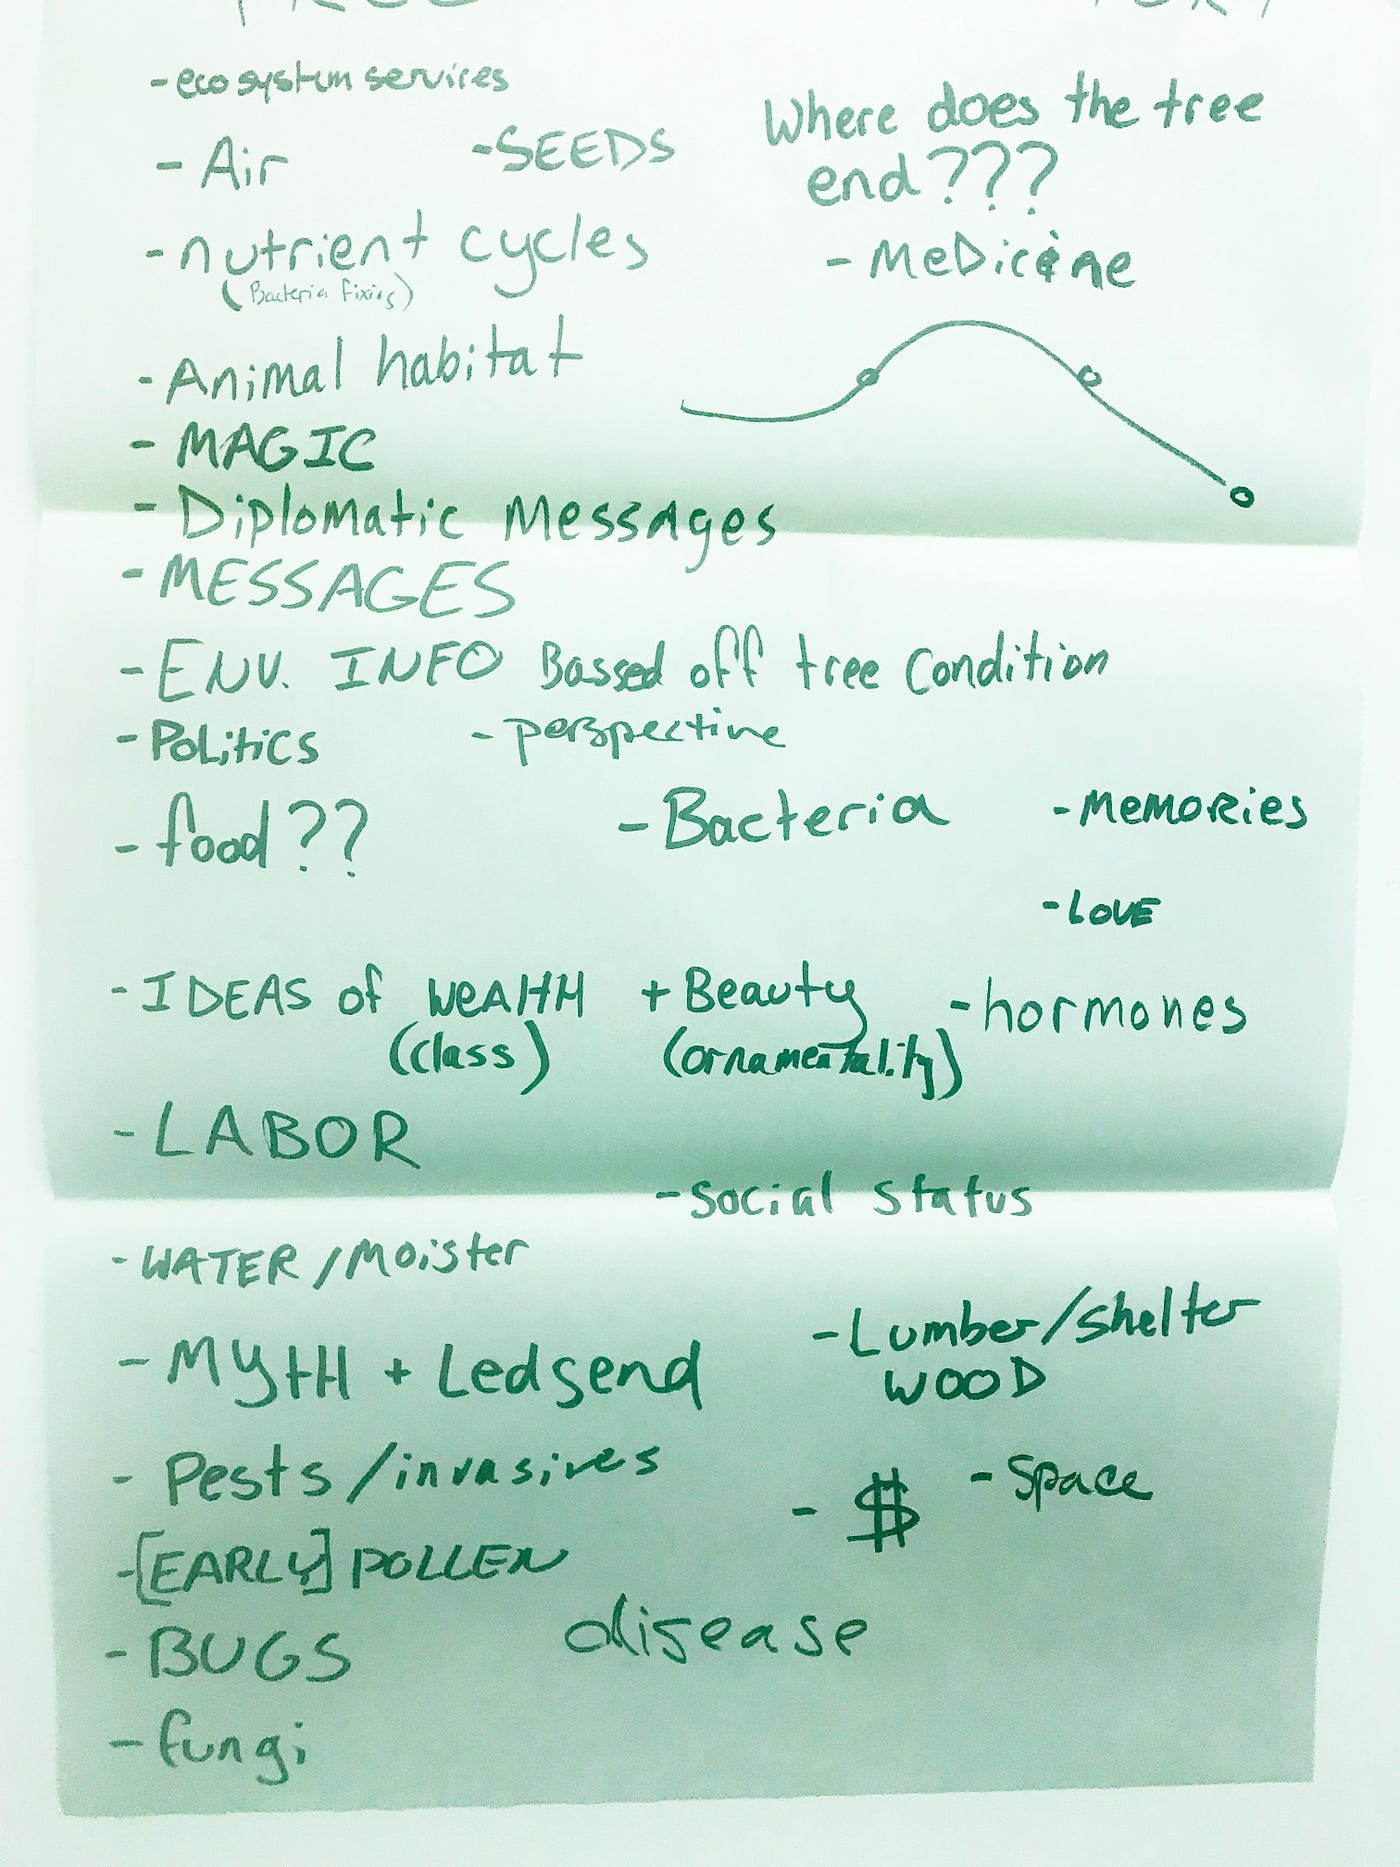 - ecosystem services
- Air
- SEEDS
Where does the tree
end???
- nutrient cycles
(Bacteria fixing)
- Medicine
- Animal habitat
- MAGIC
- Diplomatic Messages
- MESSAGES
- ENV. INFO Bassed off tree Condition
- Politics
- perspective
- food??
- Bacteria
- Memories
- LOVE
- IDEAS of WEALtH + Beauty
(class) (ornamentality)
- hormones
- LABOR
- Social Status
- WATER/Moister
- Lumber/shelter
WOOD
- MYtH + Ledgend
- Pests/invasives
- $
- Space
- [EARLY] POLLEN
- BUGS
disease
- fungi